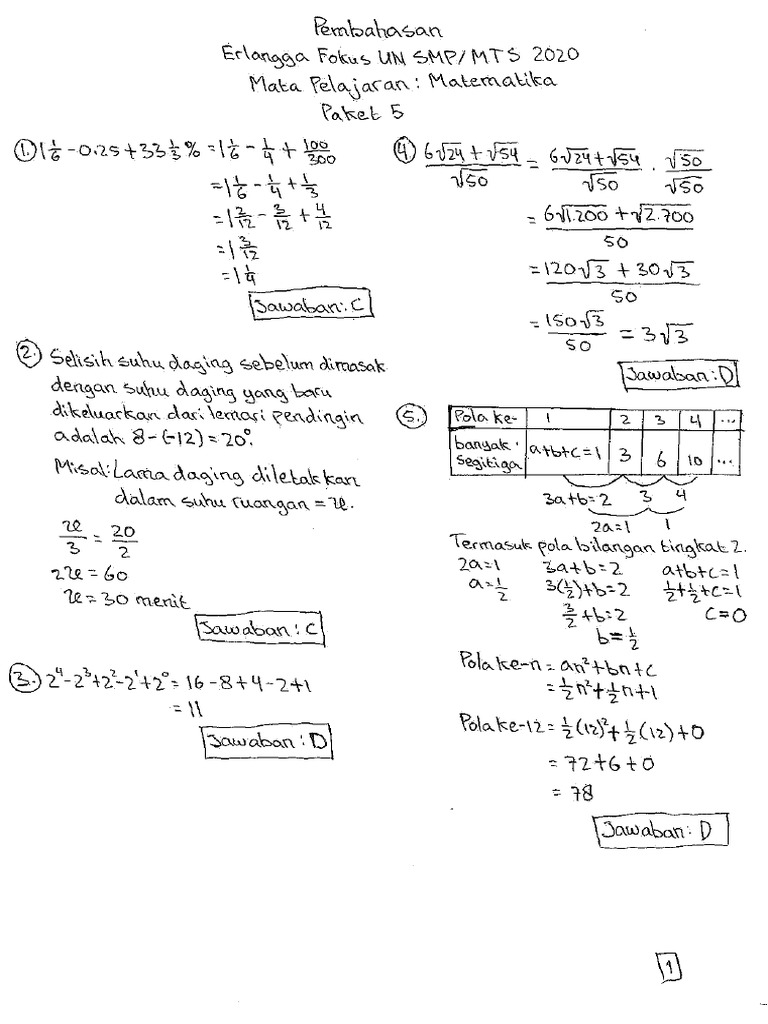 Pembahasan
Erlangga Fokus UN SMP/MTS 2020
Mata Pelajaran: Matematika
Paket 5
1. 1 1/6 - 0.25 + 33 1/3 % = 1 1/6 - 1/4 + 100/300
= 1 1/6 - 1/4 + 1/3
= 1 2/12 - 3/12 + 4/12
= 1 3/12
= 1 1/4
Jawaban: C
2. Selisih suhu daging sebelum dimasak
dengan suhu daging yang baru
dikeluarkan dari lemari pendingin
adalah 8-(-12) = 20°.
Misal: Lama daging diletakkan
dalam suhu ruangan = x.
x/3 = 20/2
2x = 60
x = 30 menit
Jawaban: C
3. 2⁴-2³+2²-2¹+2⁰ = 16-8+4-2+1
= 11
Jawaban: D
4. (6√24 + √54)/√50 = (6√24 + √54)/√50 . √50/√50
= (6√1.200 + √2.700)/50
= (120√3 + 30√3)/50
= 150√3/50 = 3√3
Jawaban: D
5. Pola ke- 1 2 3 4 ...
banyak segitiga a+b+c=1 3 6 10 ...
3a+b=2 3 4
2a=1 1
Termasuk pola bilangan tingkat 2.
2a=1 3a+b=2 a+b+c=1
a=1/2 3(1/2)+b=2 1/2+1/2+c=1
3/2+b=2 c=0
b=1/2
Pola ke-n = an²+bn+c
= 1/2n²+1/2n+1
Pola ke-12 = 1/2(12)²+1/2(12)+0
= 72+6+0
= 78
Jawaban: D
1